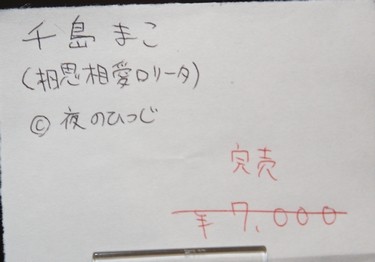 千島 まこ
(相思相愛ロリータ)
© 夜のひつじ
完売
¥7,000